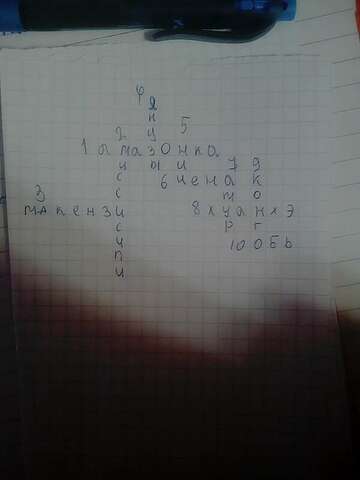 4 я
н
2 ц 5
1 амазонка
и ы и 7 9
с 6 лена к
3 с м о
макензи 8 хуанхэ
с р г
и 10 обь
п
и